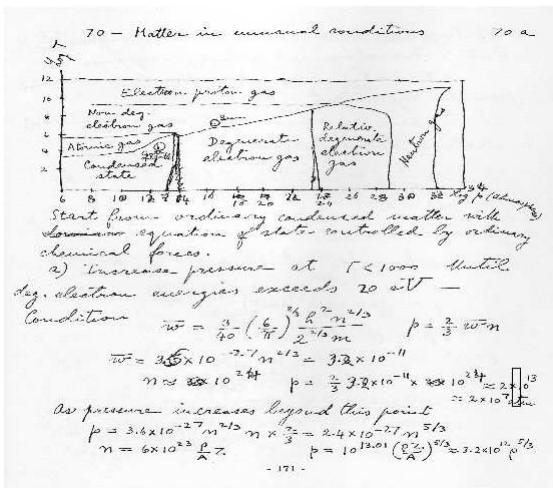 70 – Matter in unusual conditions 70 a
12
10
8
6
4
2
Electron proton gas
Non deg.
electron gas
Atomic gas
Condensed
state
Degenerate
electron gas
Relativ.
degenerate
electron
gas
Neutron gas
6 8 10 12
Start from ordinary condensed matter with
equation of state controlled by ordinary
chemical forces.
a) Increase pressure at T<1000 Until
deg. electron energies exceeds 20 eV —
Condition w̄ = 3/40 (6/π)^2/3 h² n^2/3 / 2^2/3 m p = 2/3 w̄ n
w̄ = 3.6×10^-27 n^2/3 = 3.2×10^-11
n ≈ 10^24 p = 2/3 3.2×10^-11 × 10^24 ≈ 2×10^13
≈ 2×10^7 atm
As pressure increases beyond this point
p = 3.6×10^-27 n^2/3 n × 2/3 = 2.4×10^-27 n^5/3
n = 6×10^23 ρ/A Z. p = 10^13.01 (ρZ/A)^5/3 ≈ 3.2×10^12 ρ^5/3
- 171 -